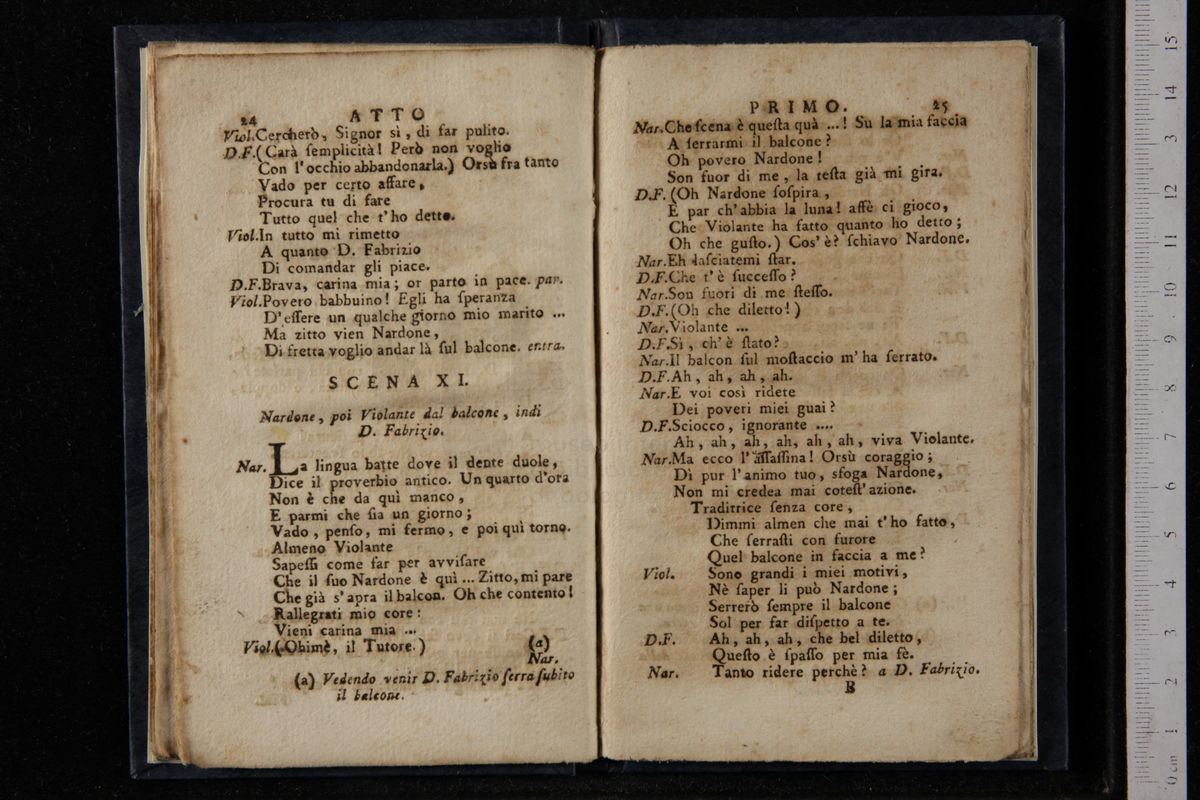 24 ATTO
Viol.Cercherò, Signor sì, di far pulito.
D.F.(Carà ſemplicità! Però non voglio
Con l'occhio abbandonarla.) Orsù fra tanto
Vado per certo affare,
Procura tu di fare
Tutto quel che t'ho detto.
Viol.In tutto mi rimetto
A quanto D. Fabrizio
Di comandar gli piace.
D.F.Brava, carina mia; or parto in pace. par.
Viol.Povero babbuino! Egli ha ſperanza
D'eſſere un qualche giorno mio marito ...
Ma zitto vien Nardone,
Di fretta voglio andar là ſul balcone. entra.
SCENA XI.
Nardone, poi Violante dal balcone, indi
D. Fabrizio.
Nar. La lingua batte dove il dente duole,
Dice il proverbio antico. Un quarto d'ora
Non è che da quì manco,
E parmi che ſia un giorno;
Vado, penſo, mi fermo, e poi quì torno.
Almeno Violante
Sapeſſi come far per avviſare
Che il ſuo Nardone è quì ... Zitto, mi pare
Che già s'apra il balcon. Oh che contento!
Rallegrati mio core:
Vieni carina mia ...
Viol.(Ohimè, il Tutore.) (a)
Nar.
(a) Vedendo venir D. Fabrizio ſerra ſubito
il balcone.
PRIMO. 25
Nar.Che ſcena è queſta quà ...! Su la mia faccia
A ſerrarmi il balcone?
Oh povero Nardone!
Son fuor di me, la teſta già mi gira.
D.F. (Oh Nardone ſoſpira,
E par ch'abbia la luna! affè ci gioco,
Che Violante ha fatto quanto ho detto;
Oh che guſto.) Cos'è? ſchiavo Nardone.
Nar.Eh laſciatemi ſtar.
D.F.Che t'è ſucceſſo?
Nar.Son fuori di me ſteſſo.
D.F.(Oh che diletto!)
Nar.Violante ...
D.F.Sì, ch'è ſtato?
Nar.Il balcon ſul moſtaccio m'ha ſerrato.
D.F.Ah, ah, ah, ah.
Nar.E voi così ridete
Dei poveri miei guai?
D.F.Sciocco, ignorante ....
Ah, ah, ah, ah, ah, ah, viva Violante.
Nar.Ma ecco l'aſſaſſina! Orsù coraggio;
Dì pur l'animo tuo, sfoga Nardone,
Non mi credea mai coteſt'azione.
Traditrice ſenza core,
Dimmi almen che mai t'ho fatto,
Che ſerraſti con furore
Quel balcone in faccia a me?
Viol. Sono grandi i miei motivi,
Nè ſaper li può Nardone;
Serrerò ſempre il balcone
Sol per far diſpetto a te.
D.F. Ah, ah, ah, che bel diletto,
Queſto è ſpaſſo per mia fè.
Nar. Tanto ridere perchè? a D. Fabrizio.
B
15
14
13
12
11
10
9
8
7
6
5
4
3
2
1
0 cm